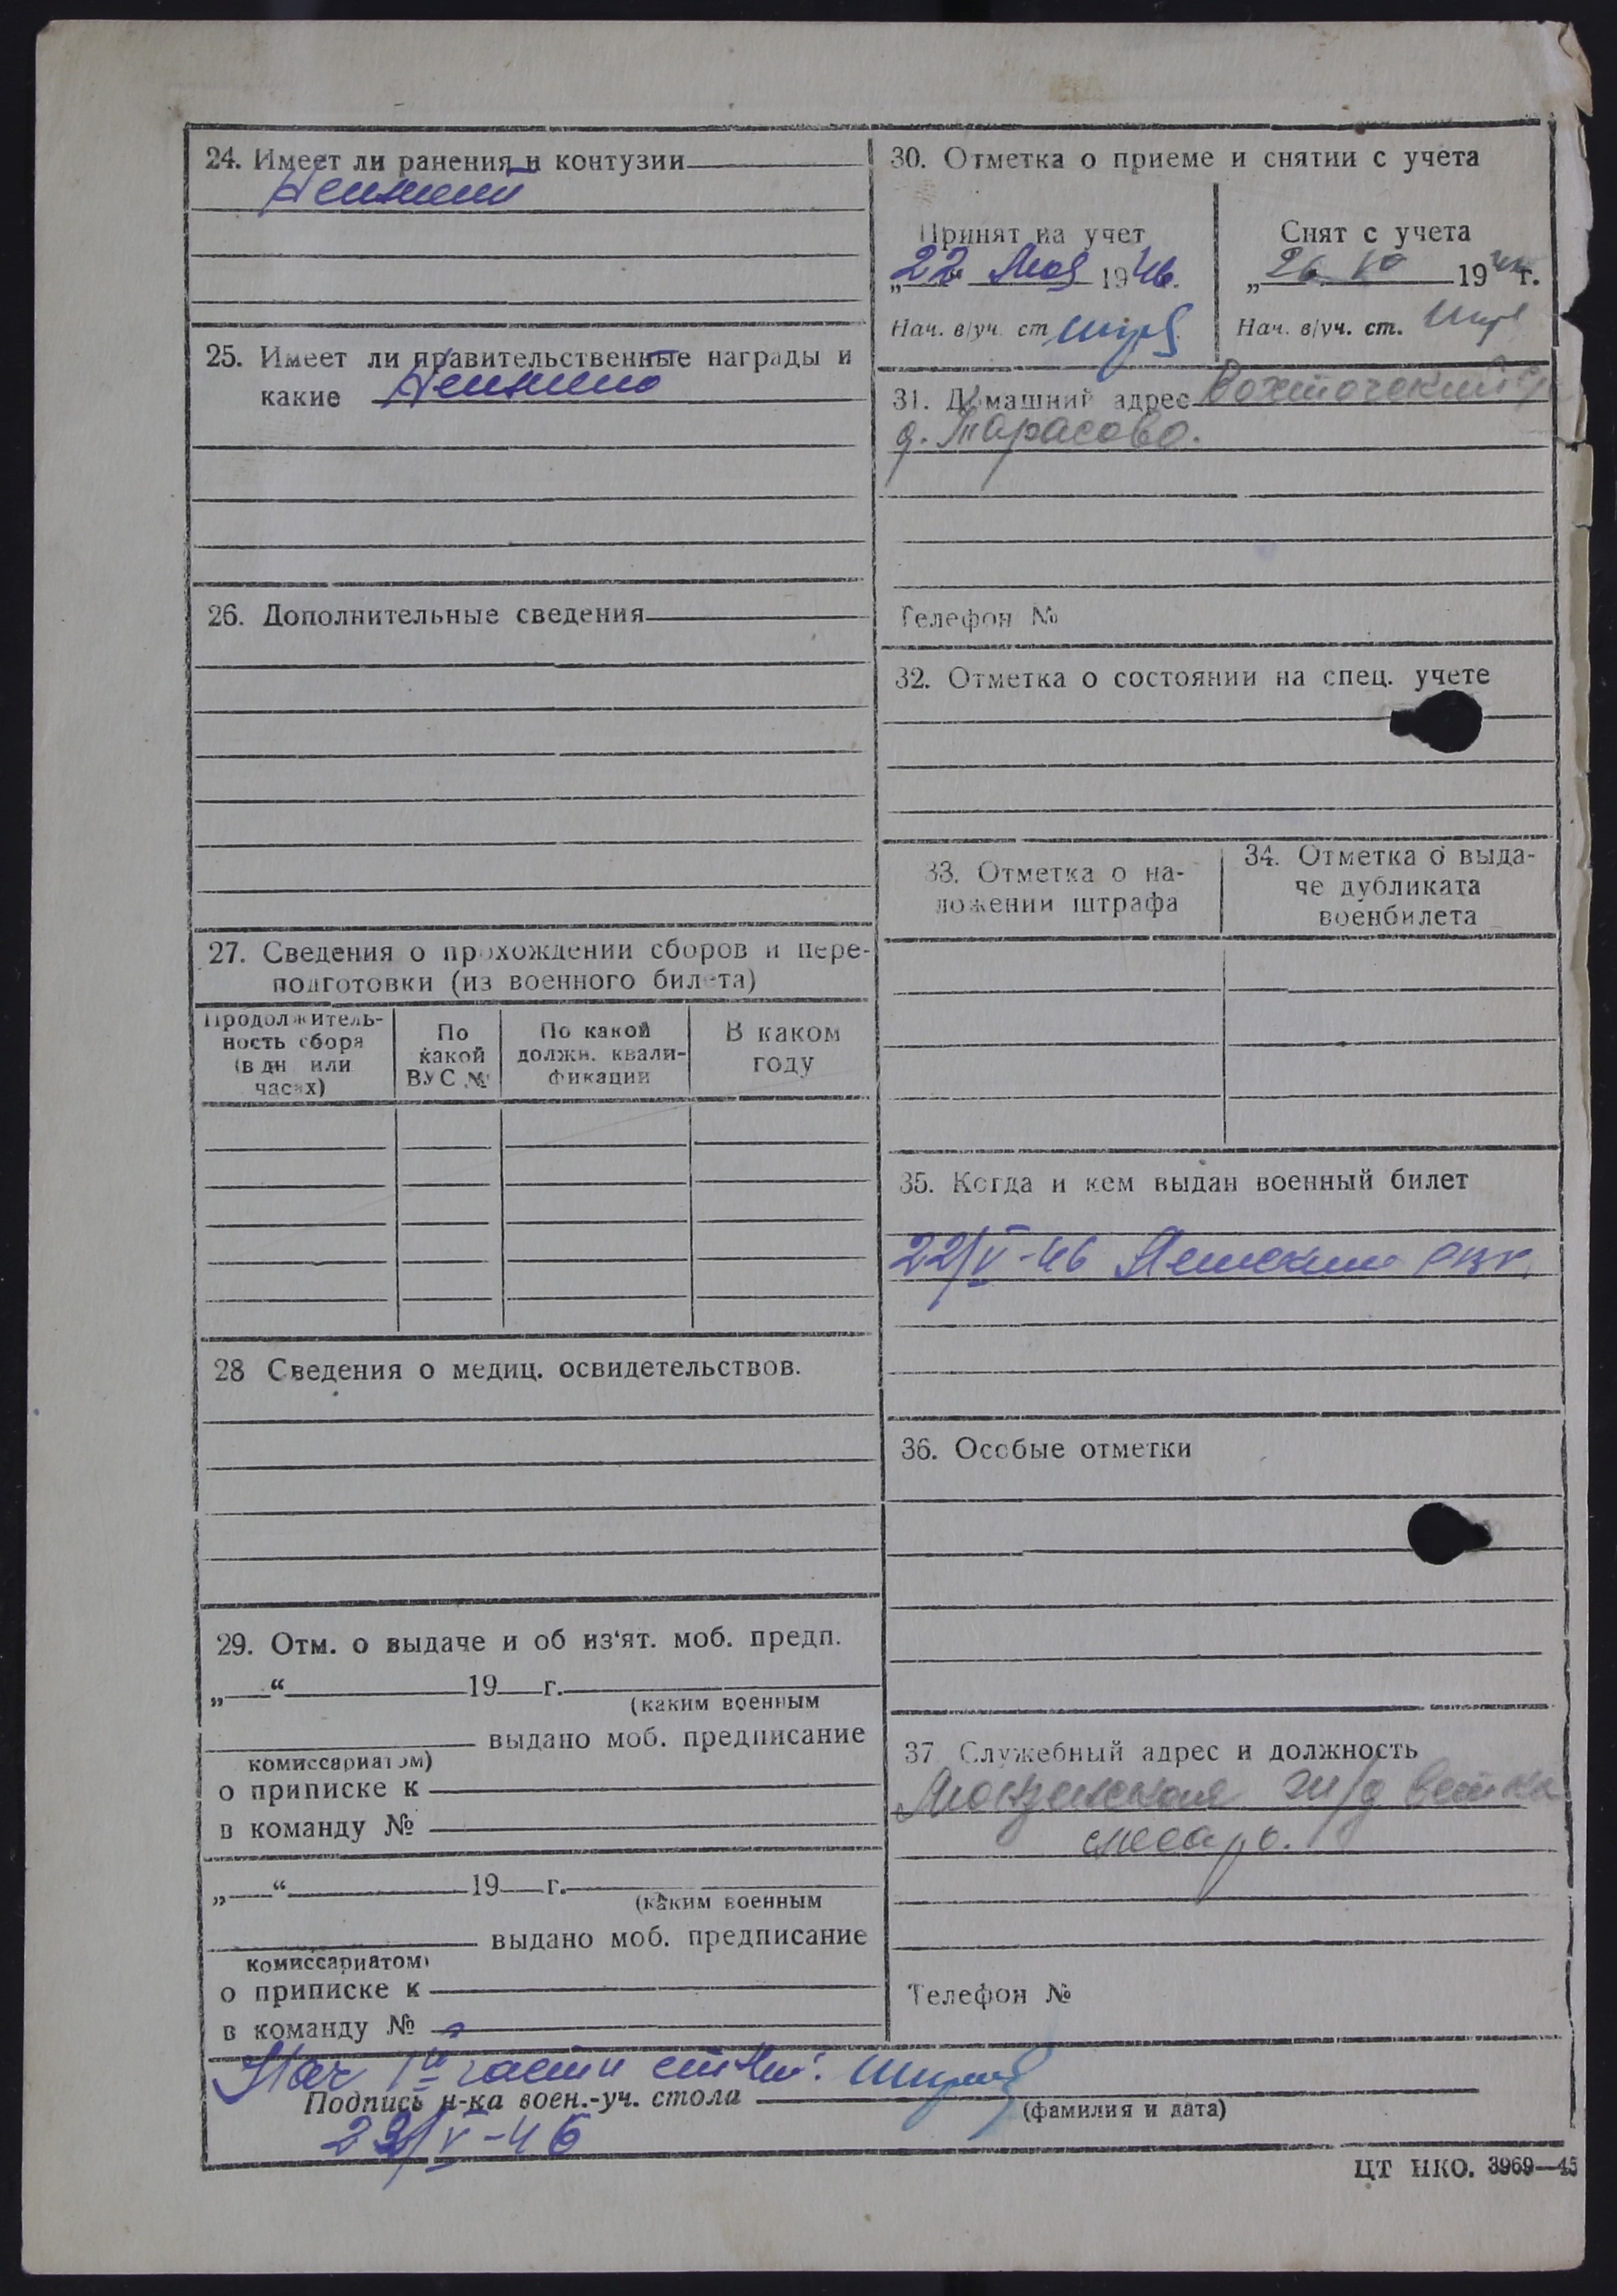 24. Имеет ли ранения и контузии
25. Имеет ли правительственные награды и
какие
26. Дополнительные сведения
27. Сведения о прохождении сборов и пере-
подготовки (из военного билета)
Продолжитель-
ность сбора
(в дн или
часах)
По
какой
ВУС №
По какой
должн. квали-
фикации
В каком
году
28 Сведения о медиц. освидетельствов.
29. Отм. о выдаче и об из‘ят. моб. предп.
„ “ 19 г.
(каким военным
выдано моб. предписание
комиссариатом)
о приписке к
в команду №
„ “ 19 г.
(каким военным
выдано моб. предписание
комиссариатом)
о приписке к
в команду №
30. Отметка о приеме и снятии с учета
Принят на учет
„22 Мая 1946.
Нач. в/уч. ст
Снят с учета
„26 19 г.
Нач. в/уч. ст.
31. Домашний адрес
д. Тарасово.
Телефон №
32. Отметка о состоянии на спец. учете
33. Отметка о на-
ложении штрафа
34. Отметка о выда-
че дубликата
военбилета
35. Когда и кем выдан военный билет
22/V-46 РВК.
36. Особые отметки
37 Служебный адрес и должность
ж/д ветка
слесарь.
Телефон №
Нач 1й части
Подпись н-ка воен.-уч. стола
(фамилия и дата)
/V-46
ЦТ НКО. 3969—45